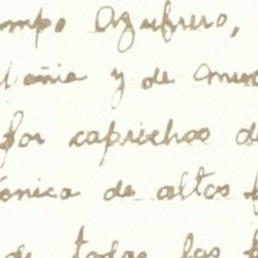 mpo Azufrero,
añia y de muc
for caprichos d
ónica de altos f
de todas las f